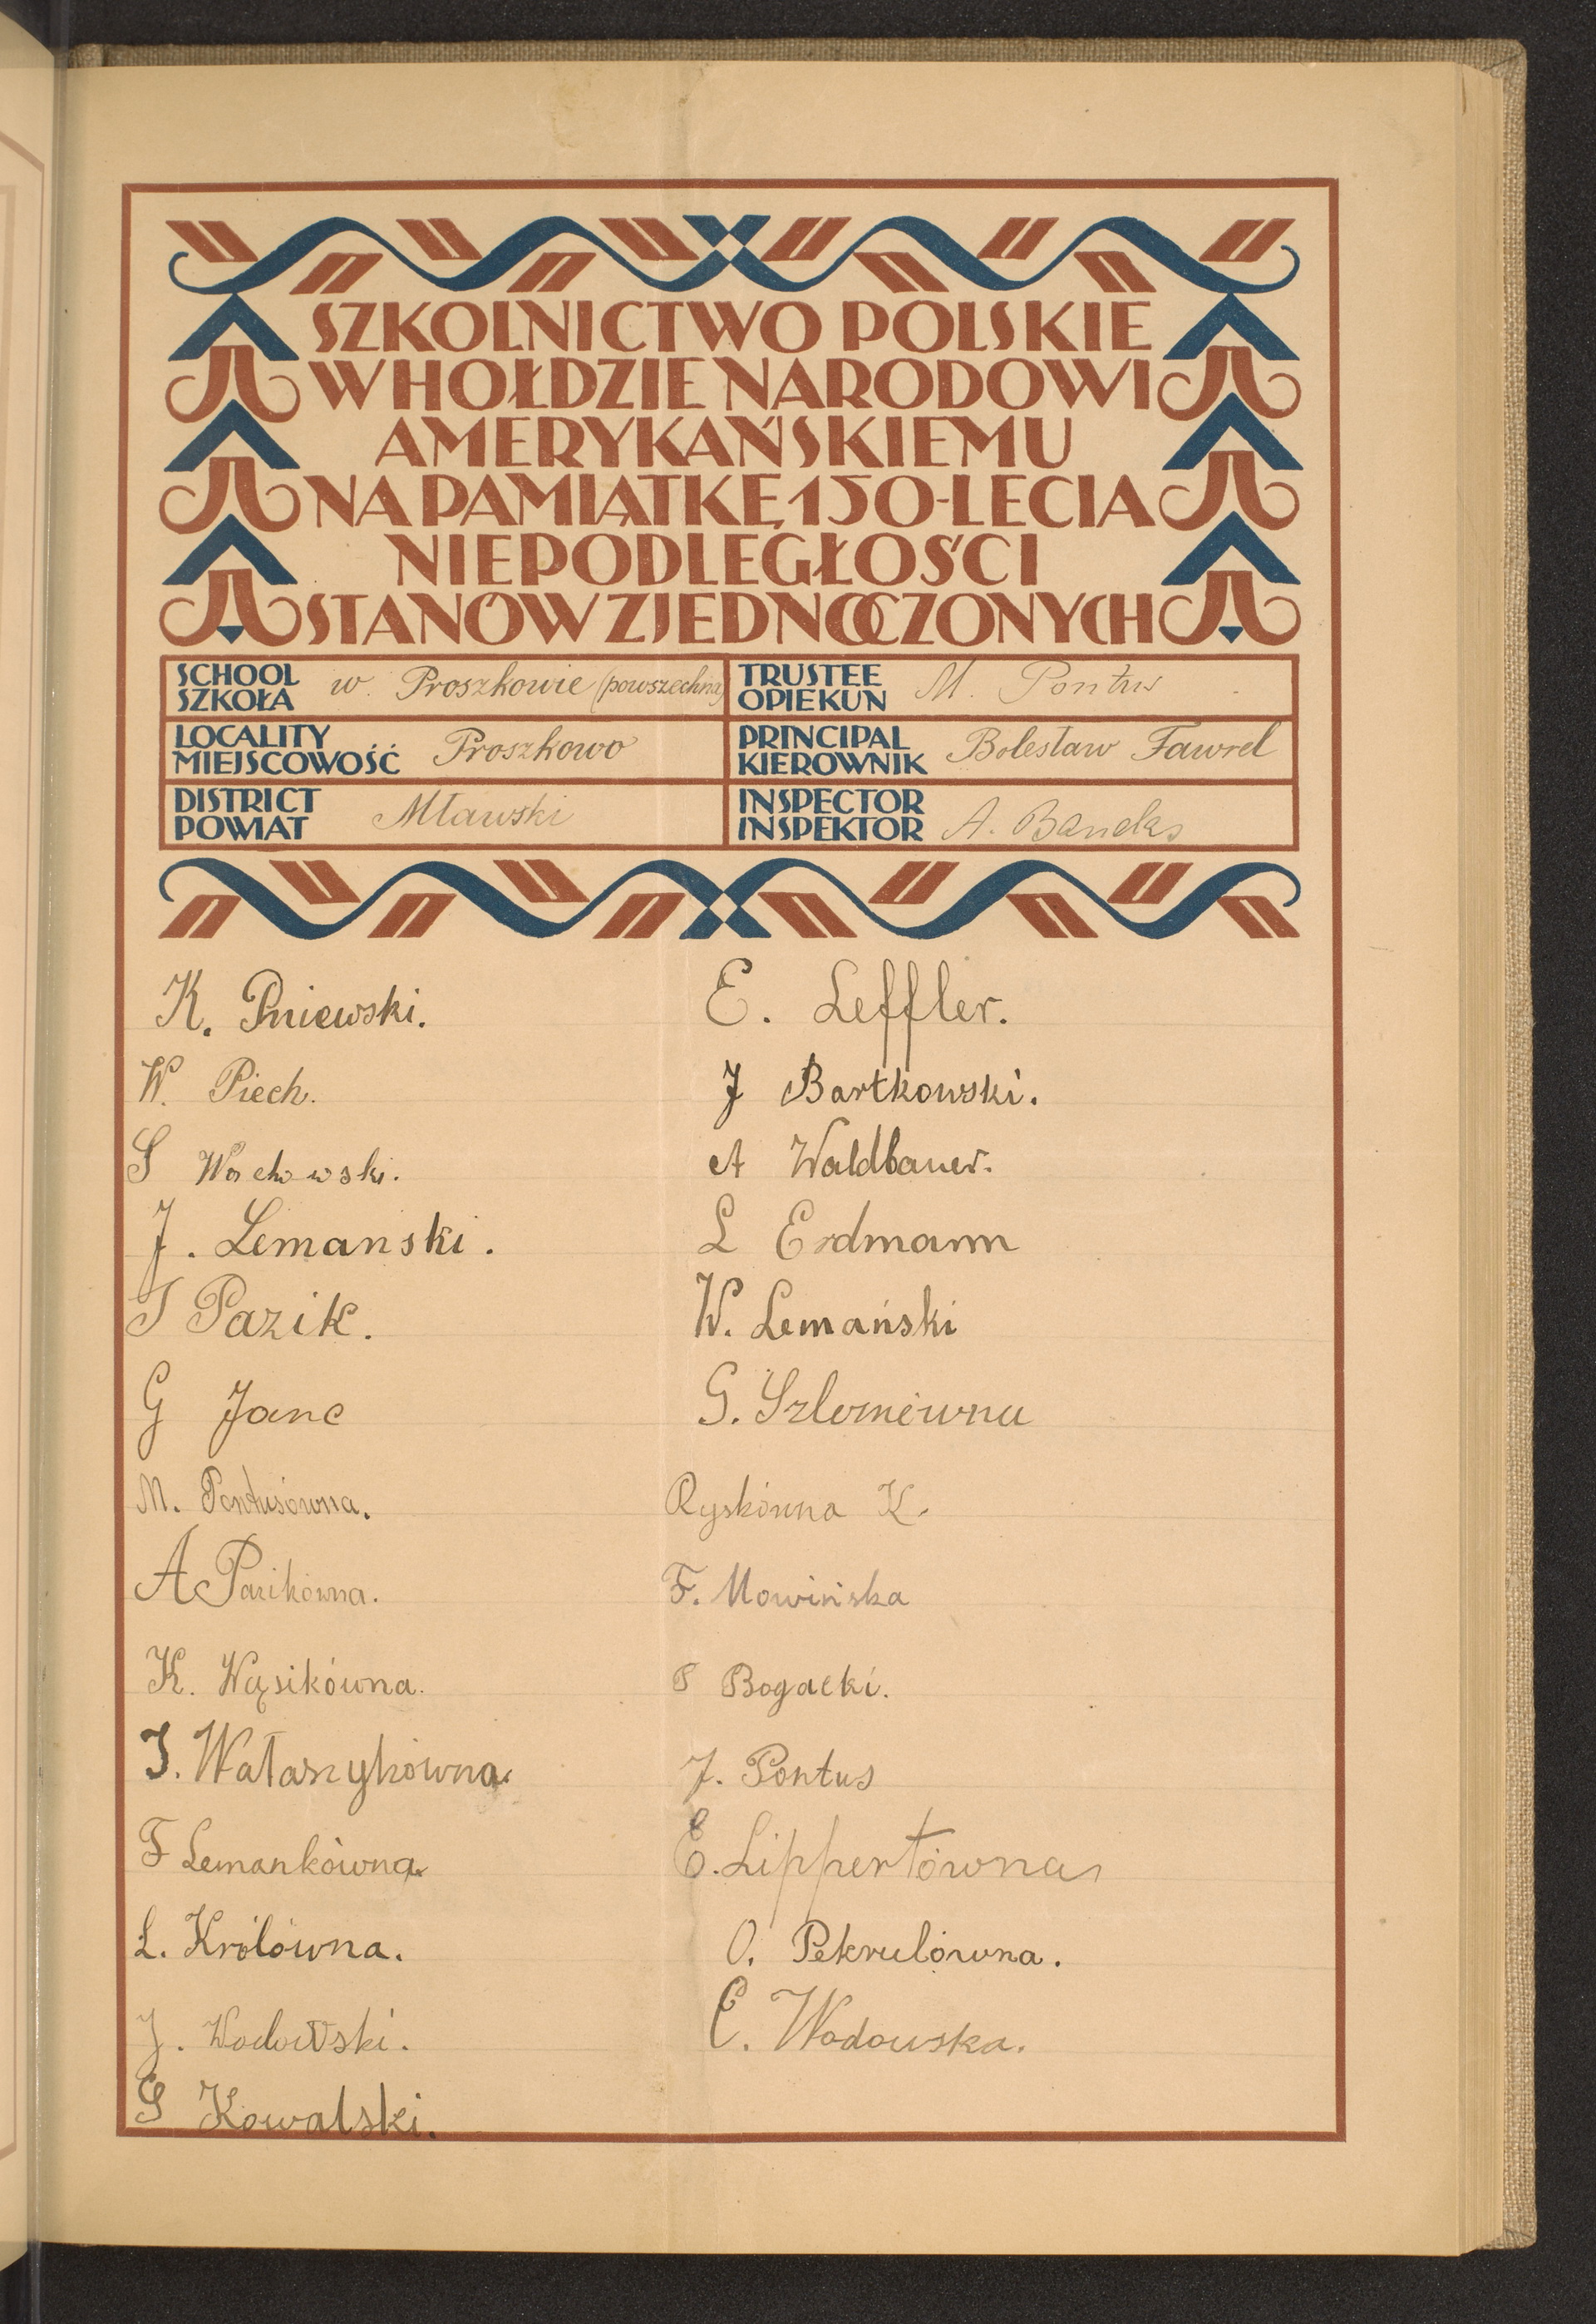 SZKOLNICTWO POLSKIE
W HOŁDZIE NARODOWI
AMERYKAŃSKIEMU
NA PAMIĄTKĘ 150-LECIA
NIEPODLEGŁOŚCI
STANÓW ZJEDNOCZONYCH
SCHOOL
SZKOŁA
w. Proszkowie (powszechna)
TRUSTEE
OPIEKUN
M. Pontus
LOCALITY
MIEJSCOWOŚĆ
Proszkowo
PRINCIPAL
KIEROWNIK
Bolesław Fawrel
DISTRICT
POWIAT
Mławski
INSPECTOR
INSPEKTOR
A.
K. Pniewski.
W. Piech.
S
J. Lemanski.
J Pazik.
G Janc
M. Pontusówna.
A Pazikówna.
K. Wąsikówna.
J. Wataszykówna.
F Lemankówna
L. Królówna.
J. Wodowski.
S Kowalski.
E. Leffler.
J Bartkowski.
A Waldbauer.
L Erdmann
W. Lemański
G. Szlomówna
Ryskówna K.
F. Nowińska
P Bogacki.
J. Pontus
E. Lippertówna
O. Pekrulówna.
E. Wodowska.